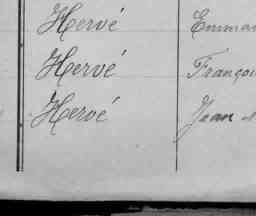 Hervé Emma
Hervé Françoi
Hervé Jean